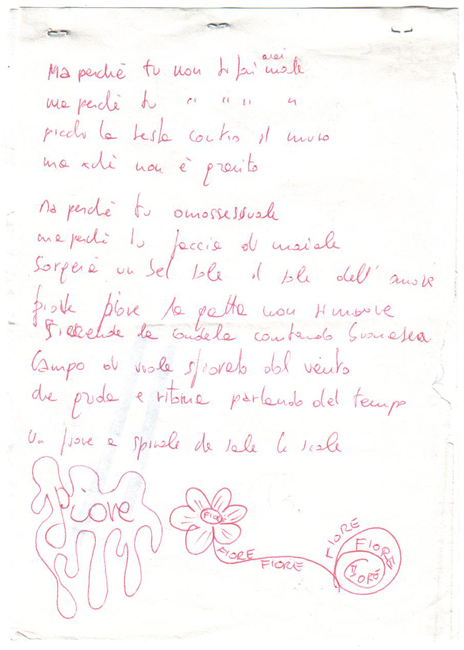 Ma perchè tu non ti fai mai male
ma perchè tu " " " "
picchi la testa contro il muro
ma xchè non è granito
Ma perchè tu omossessuale
ma perchè tu faccia di maiale
Sorgerà un bel sole il sole dell'amore
piove piove la gatta non si muove
Si accende la candela
Campo di viole sfiorato dal vento
che e ritorna parlando del tempo
Un fiore a spirale che sale le scale
piove
FIORE
FIORE
FIORE
FIORE
FIORE